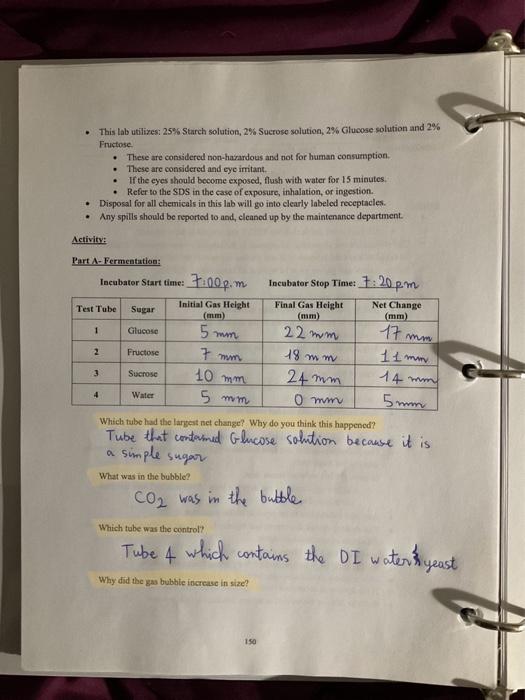 • This lab utilizes: 25% Starch solution, 2% Sucrose solution, 2% Glucose solution and 2%
Fructose.
• These are considered non-hazardous and not for human consumption.
• These are considered and eye irritant.
• If the eyes should become exposed, flush with water for 15 minutes.
• Refer to the SDS in the case of exposure, inhalation, or ingestion.
• Disposal for all chemicals in this lab will go into clearly labeled receptacles.
• Any spills should be reported to and, cleaned up by the maintenance department.
Activity:
Part A- Fermentation:
Incubator Start time: 7:00 p.m Incubator Stop Time: 7:20 pm
Test Tube Sugar Initial Gas Height (mm) Final Gas Height (mm) Net Change (mm)
1 Glucose 5 mm 22 mm 17 mm
2 Fructose 7 mm 18 mm 11 mm
3 Sucrose 10 mm 24 mm 14 mm
4 Water 5 mm 0 mm 5 mm
Which tube had the largest net change? Why do you think this happened?
Tube that contained Glucose solution because it is
a simple sugar
What was in the bubble?
CO2 was in the bubble
Which tube was the control?
Tube 4 which contains the DI water & yeast
Why did the gas bubble increase in size?
150